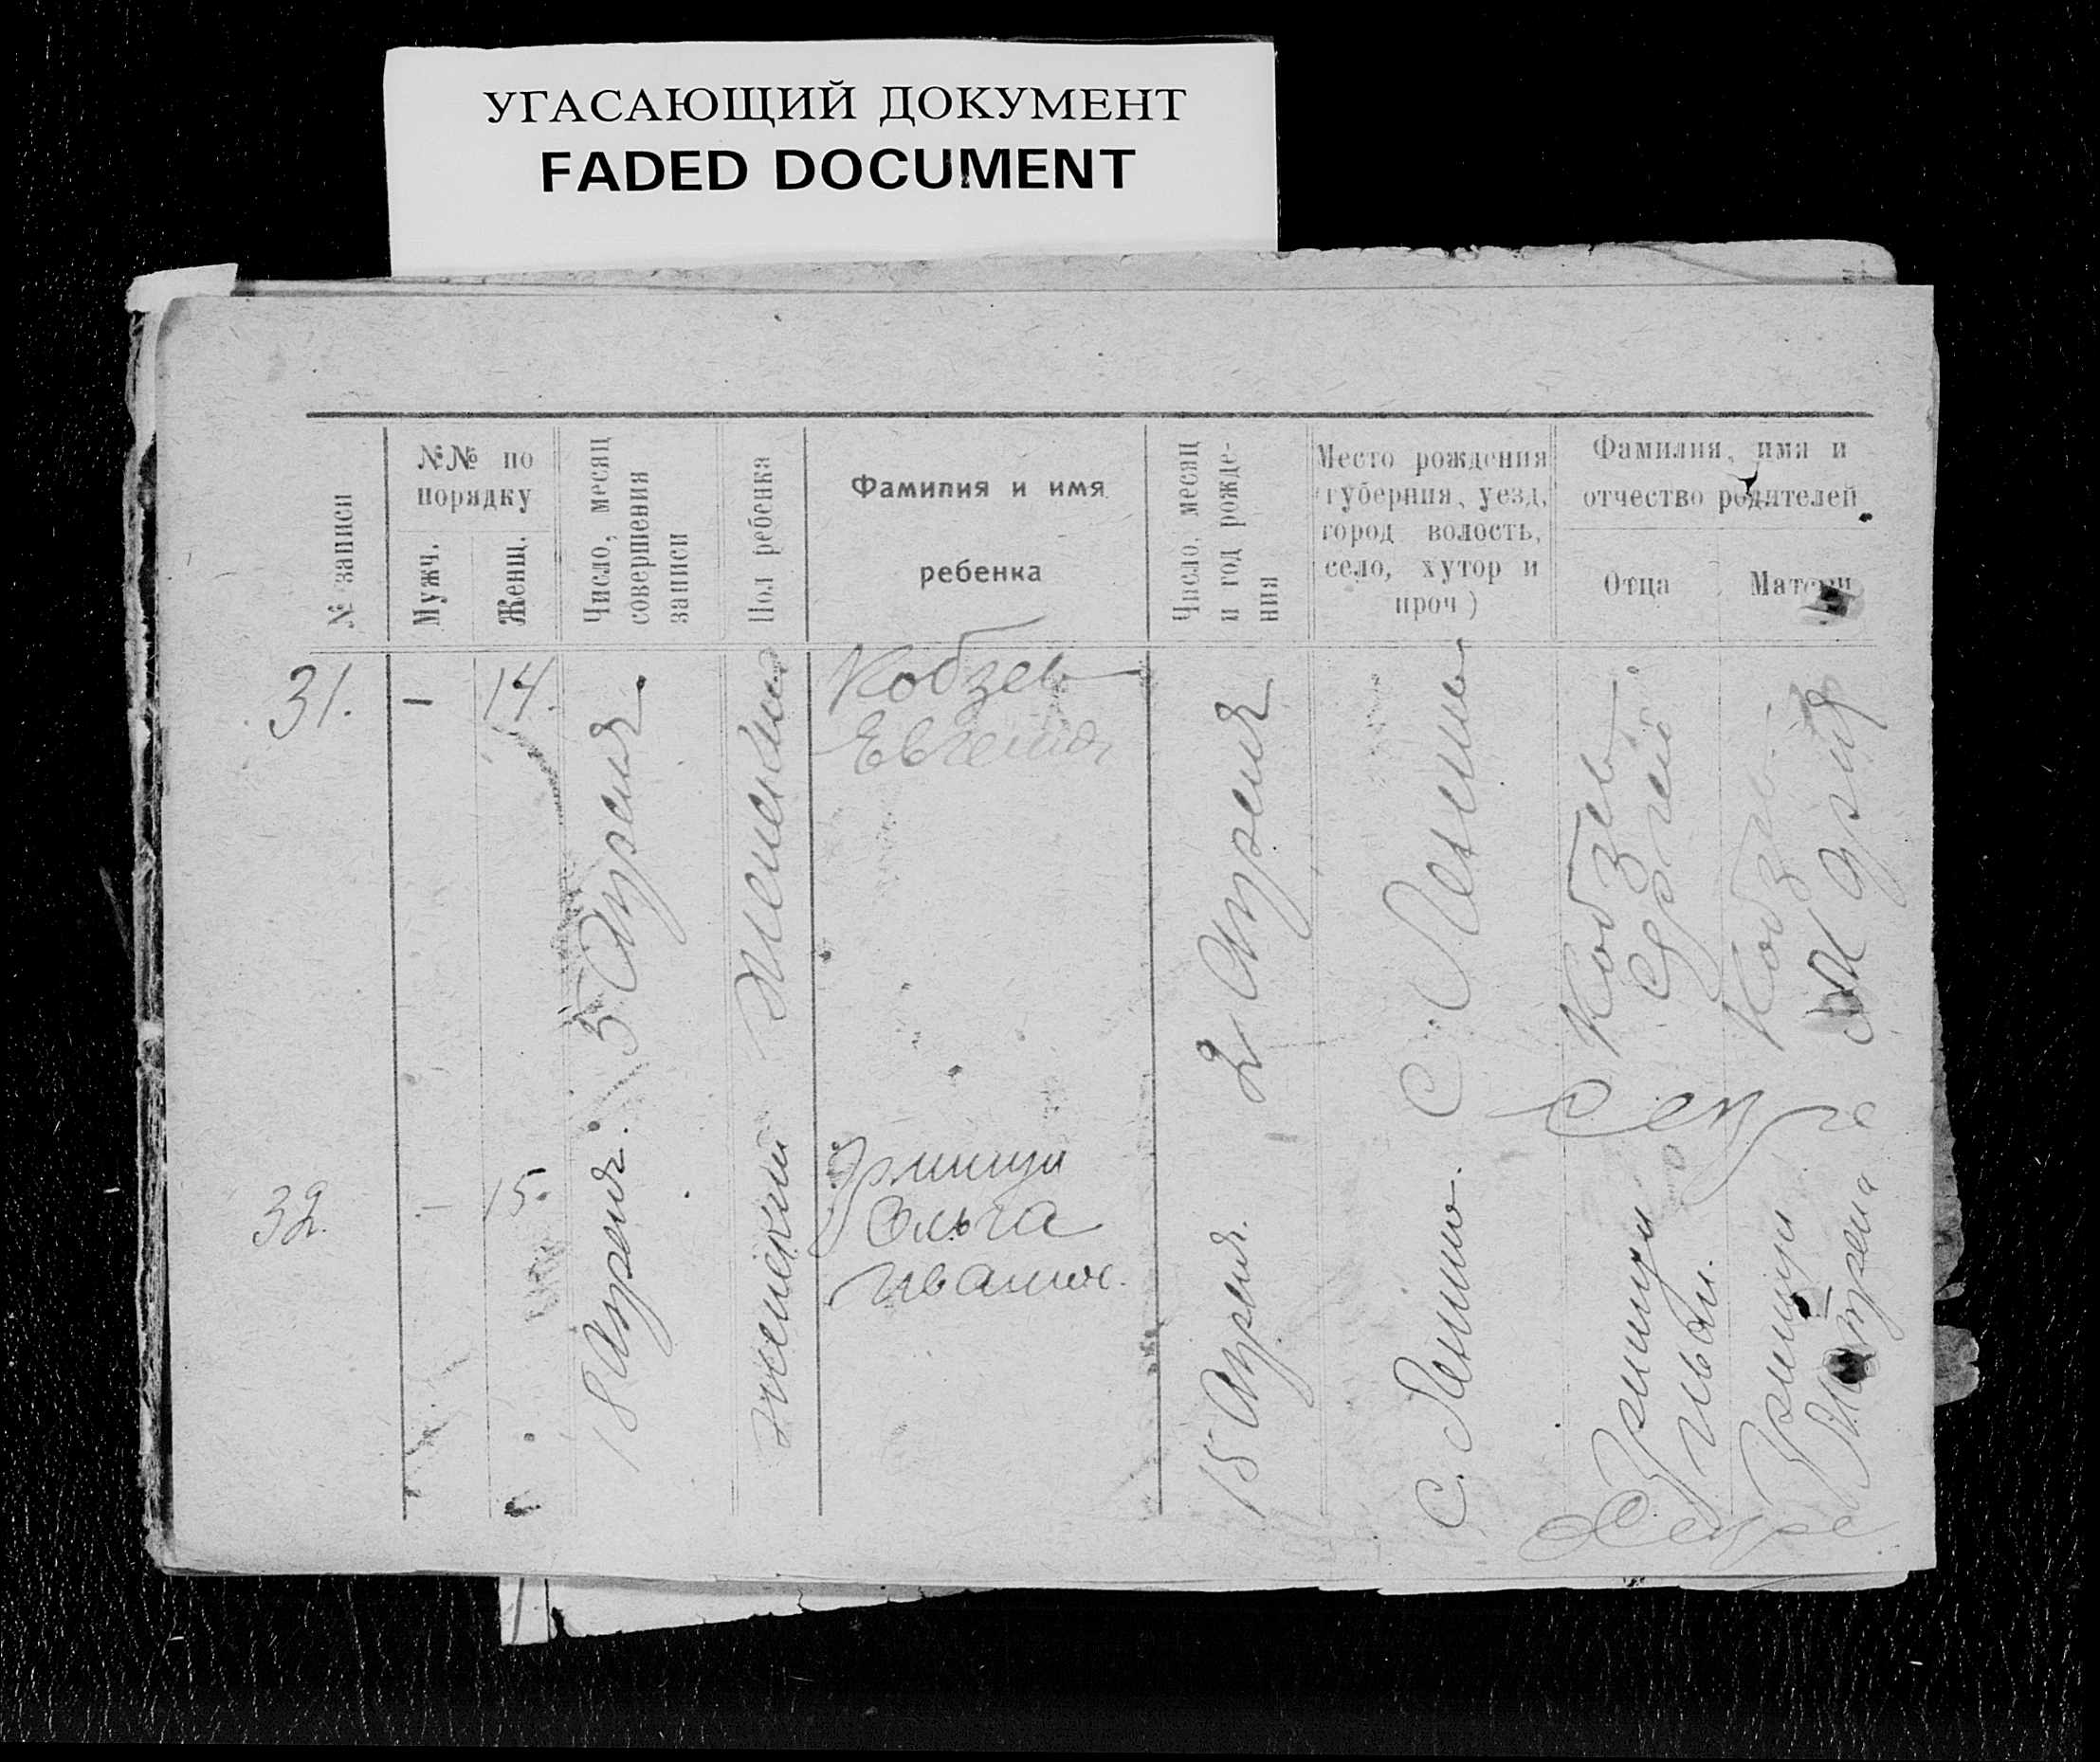 УГАСАЮЩИЙ ДОКУМЕНТ
FADED DOCUMENT
№ записи
№№ по
порядку
Мужч.
Женщ.
Число, месяц
совершения
записи
Пол ребенка
Фамилия и имя
ребенка
Число, месяц
и год рожде-
ния
Место рождения
(губерния, уезд,
город волость,
село, хутор и
проч)
Фамилия, имя и
отчество родителей
Отца
Матери
31.
-
14.
5 Апреля
Женский
Кобзев
Евгения
2 Апреля
С.
Кобзев
Сергей
Кобзев
Мария
32.
-
15.
18 Апреля.
женский
Ольга
Иванов.
15 Апреля.
С.
Иван.